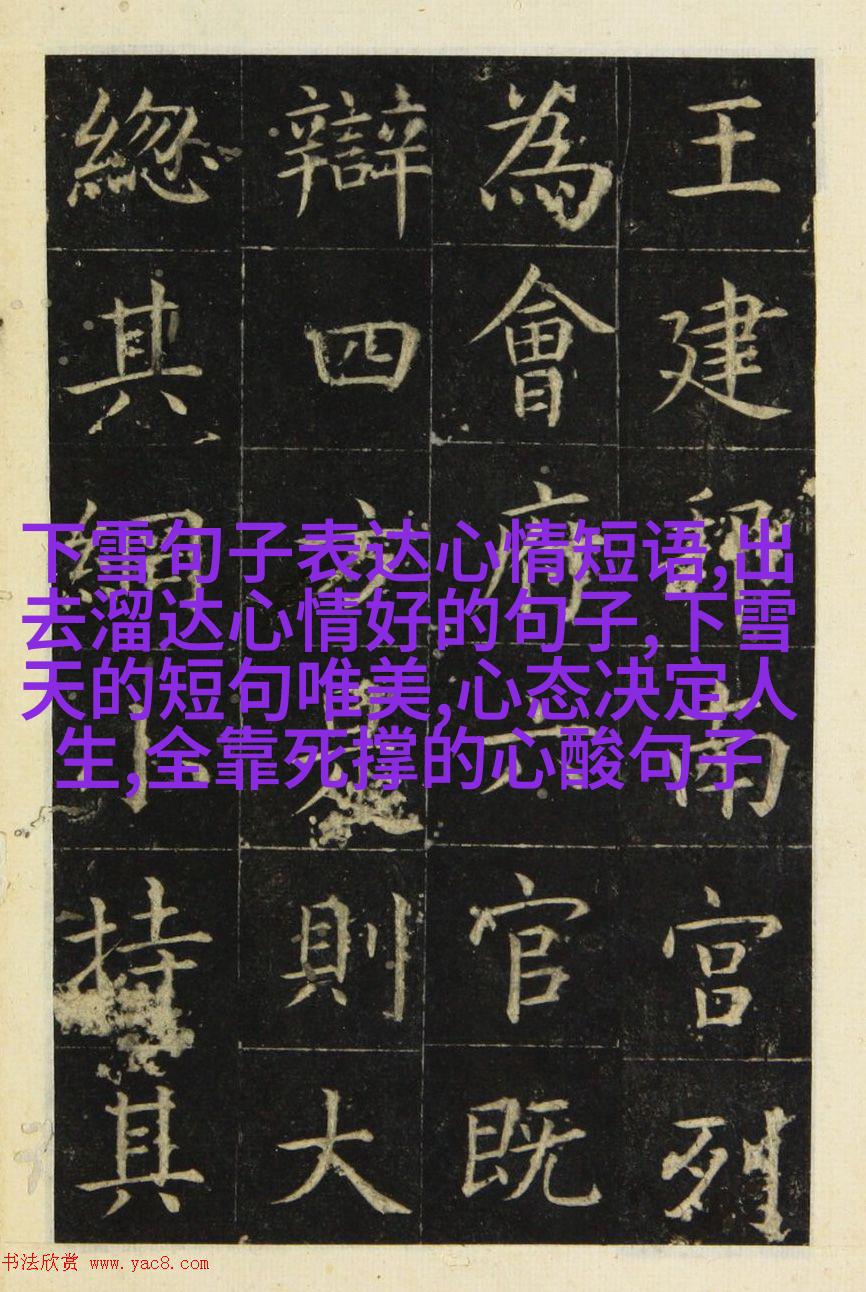 王建邦南宫列
為會府六官既
辯四方是則大
緫其綱小持其
下雪句子表达心情短语,出
去溜达心情好的句子,下雪
天的短句唯美,心态决定人
生,全靠死撑的心酸句子
书法欣赏 www.yac8.com